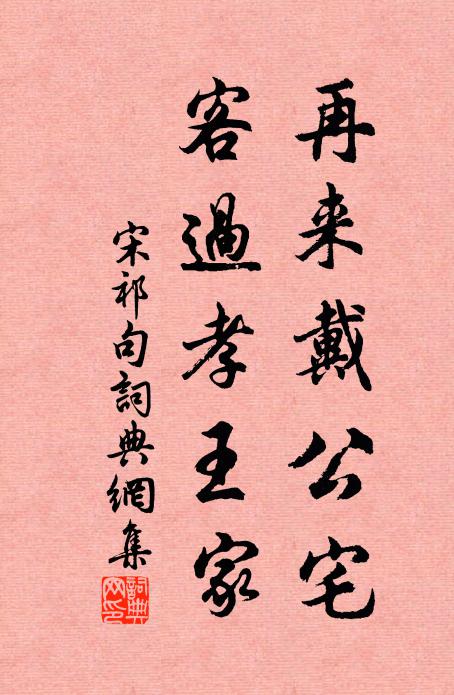 再来戴公宅
客過孝王家
宋祁句詞典網集
詞典网印